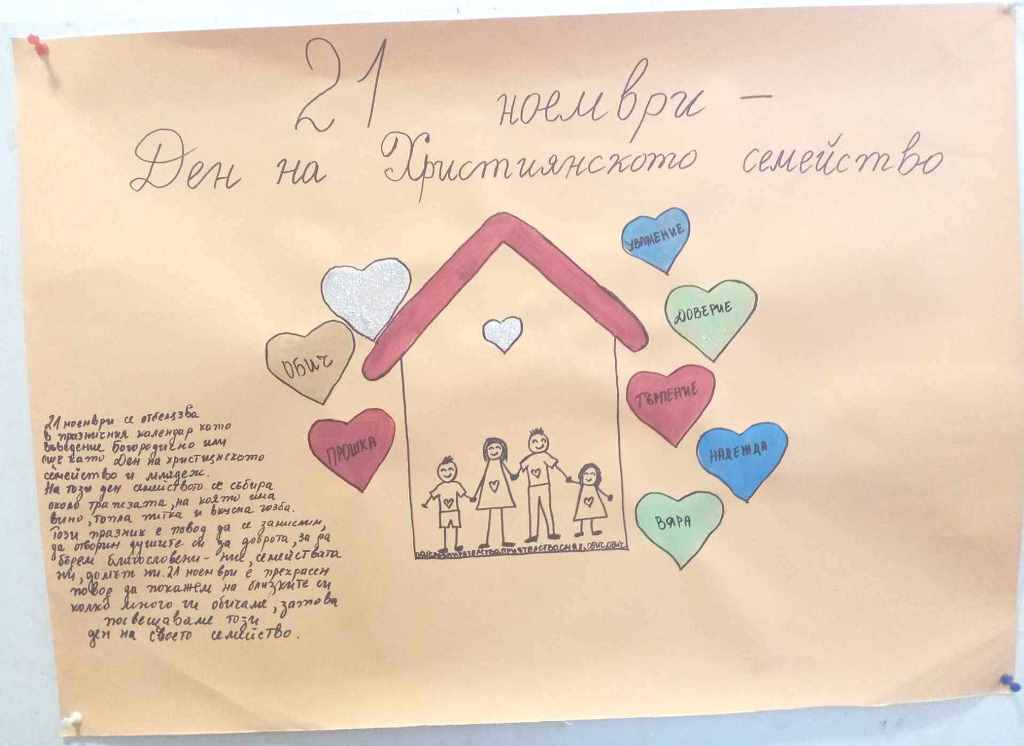 21 ноември -
Ден на Християнското семейство
УВАЖЕНИЕ
ДОВЕРИЕ
ОБИЧ
ТЪРПЕНИЕ
ПРОШКА
НАДЕЖДА
ВЯРА
21 ноември се отбелязва
в празничния календар като
Въведение Богородично или
още като Ден на християнското
семейство и младеж.
На този ден семейството се събира
около трапезата, на която има
вино, топла питка и вкусна гозба.
Този празник е повод да се замислим,
да отворим душите си за доброта, за да
бъдем благословени - ние, семействата
ни, домът ни. 21 ноември е прекрасен
повод да покажем на близките си
колко много ги обичаме, затова
посвещаваме този
ден на своето семейство.